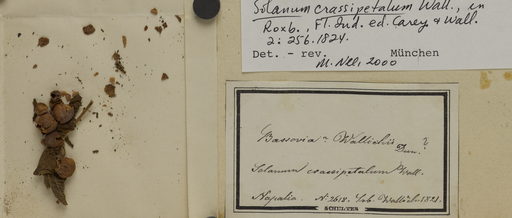 Solanum crassipetalum Wall., in
Roxb., Fl. Ind. ed. Carey & Wall.
2: 256. 1824.
Det. - rev. München
M. Nee, 2000
Bassovia Wallichii Dun. ?
Solanum crassipetalum Wall.
Napalia. N. 2618. Wallich. 1821.
SCHEDULES